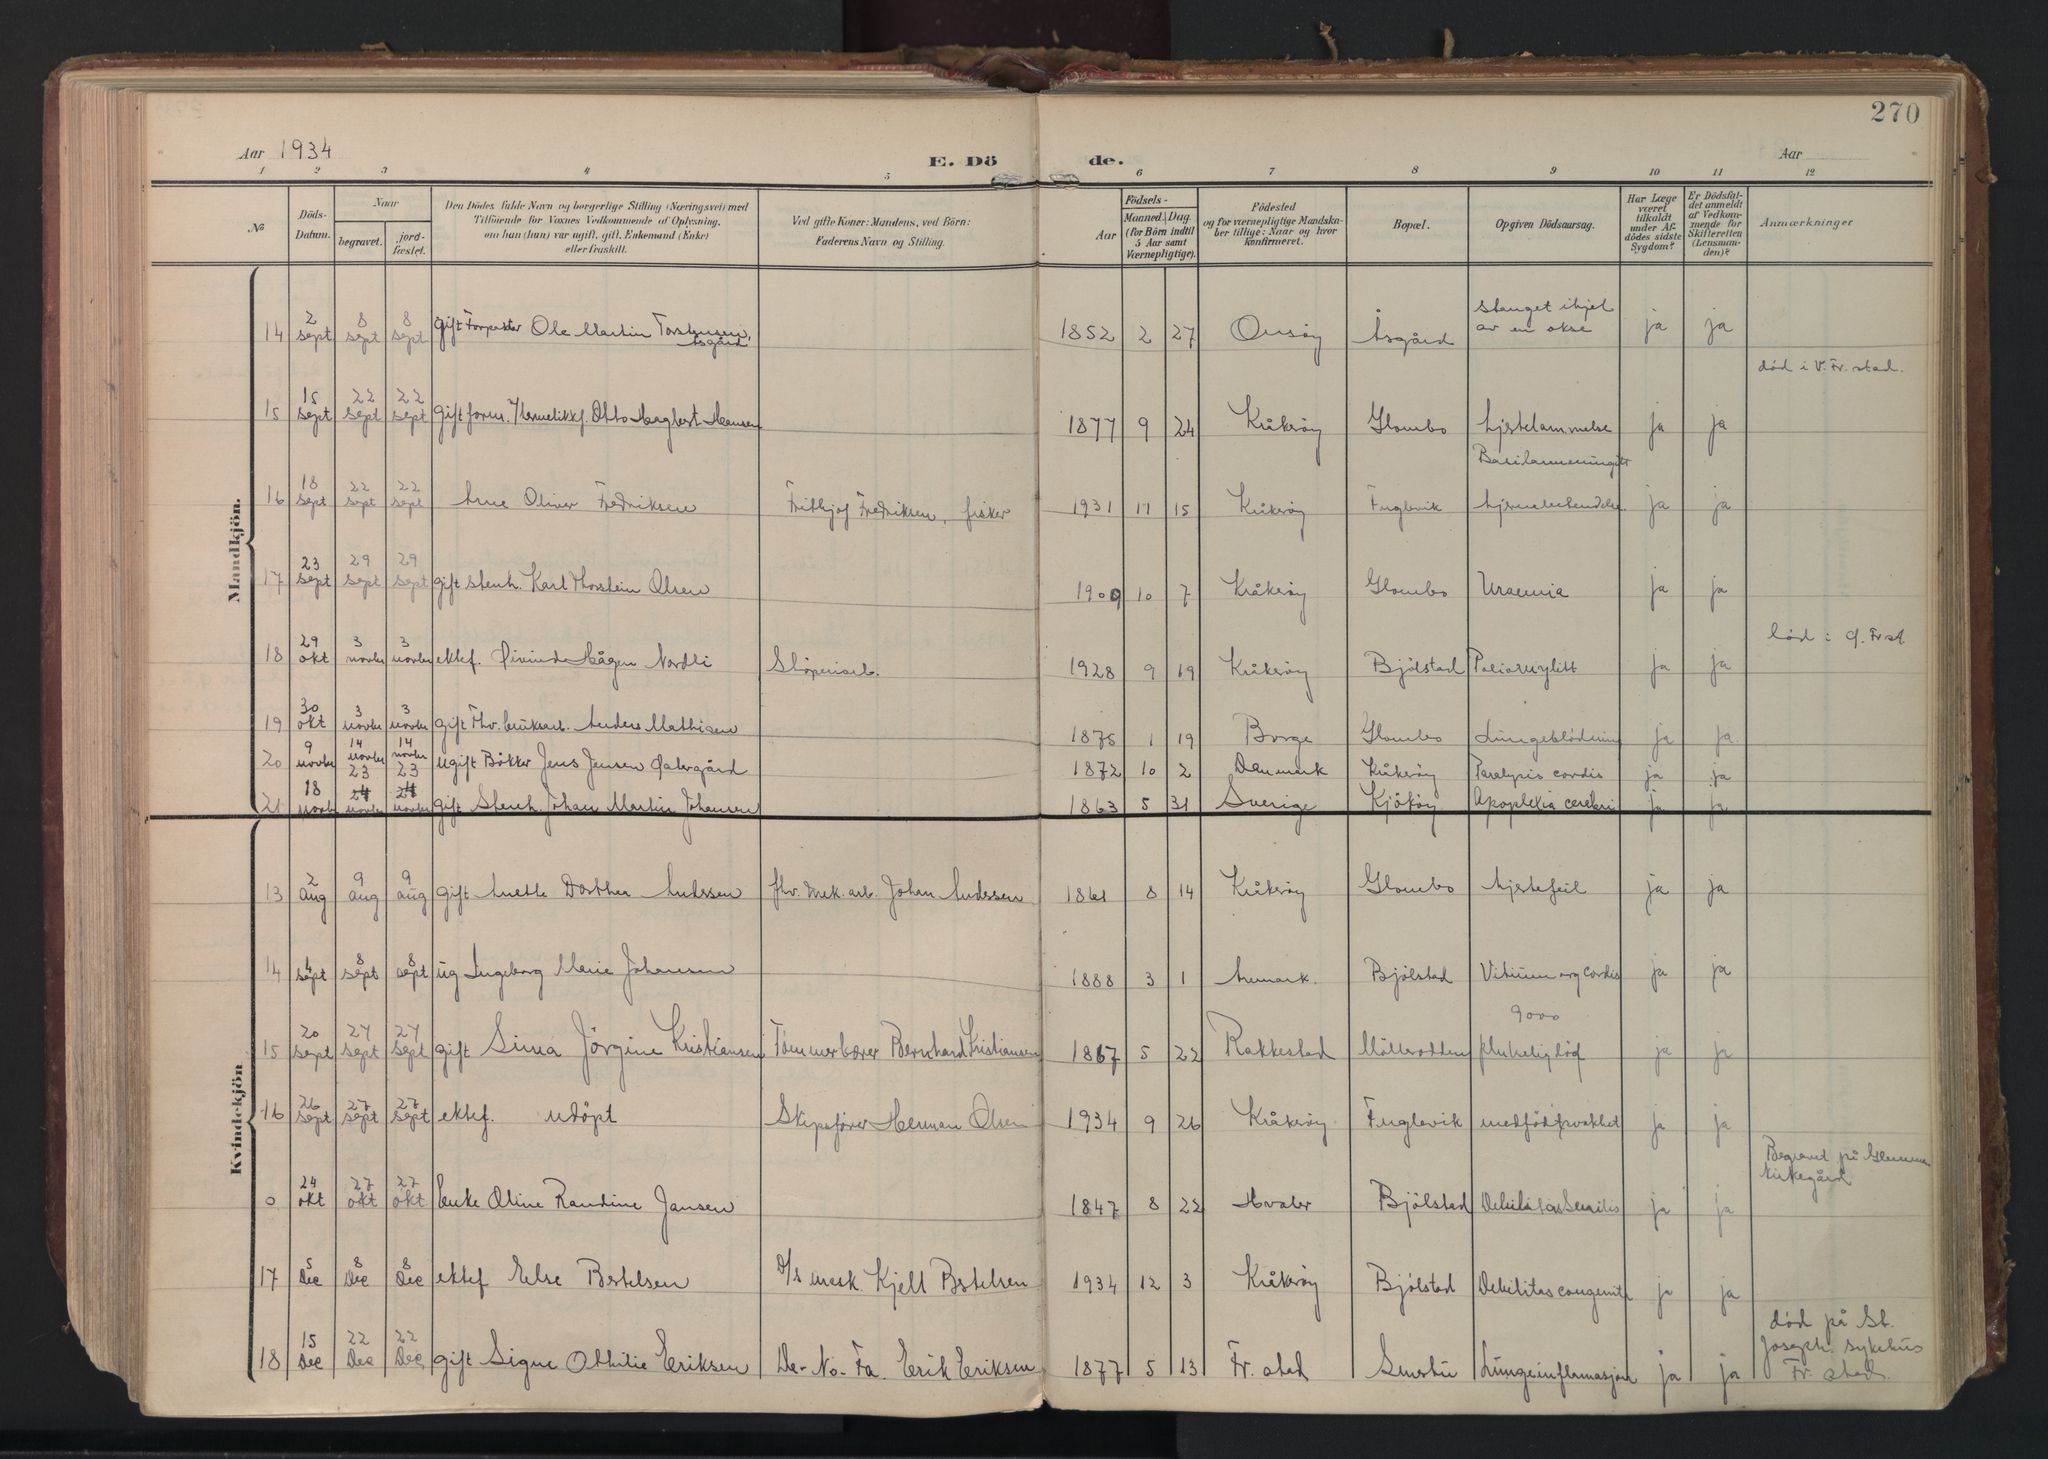 270
Aar 1934
E. Dö de.
Aar
1 2 3 4 5 6 7 8 9 10 11 12
№
Döds-Datum.
Naar
begravet.
jord-fæstet.
Den Dödes fulde Navn og borgerlige Stilling (Næringsvei) med
Tilföiende for Voxnes Vedkommende af Oplysning,
om han (hun) var ugift, gift, Enkemand (Enke)
eller fraskilt.
Ved gifte Koner: Mandens, ved Börn:
Faderens Navn og Stilling.
Födsels-
Aar
Maaned. Dag.
(for Börn indtil
5 Aar samt
Værnepligtige).
Födested
og for værnepligtige Mandska-
ber tillige: Naar og hvor
konfirmeret.
Bopæl.
Opgiven Dödsaarsag.
Har Læge
været
tilkaldt
under Af-
dödes sidste
Sygdom?
Er Dödsfal-
det anmeldt
af Vedkom-
mende for
Skifteretten
(Lensman-
den)?
Anmærkninger
Mandkjön.
14 2 sept 8 sept 8 sept gift Forpakter Ole Martin Torstensen, Åsgård 1852 2 27 Onsöy Åsgård stanget ihjel av en okse ja ja
død i V. Fr.stad.
15 15 sept 22 sept 22 sept gift form. Hermetikkf. Otto Hagbert Hansen 1877 9 24 Kråkröy Glombo hjertelammelse ja ja
16 18 sept 22 sept 22 sept Arne Oliver Fredriksen Frithjof Fredriksen, fisker 1931 11 15 Kråkröy Fuglevik hjernebetendelse ja ja
17 23 sept 29 sept 29 sept gift stenh. Karl Thorstein Olsen 1900 10 7 Kråkröy Glombo Uraemia ja ja
18 29 okt 3 novbr 3 novbr ektef. Øivind Hågen Nordli Støperiarb. 1928 9 19 Kråkröy Bjölstad Poliomylitt ja ja
19 30 okt 3 novbr 3 novbr gift Fhv. bruksarb. Anders Mathisen 1875 1 19 Borge Glombo Lungeblödning ja ja.
20 9 novbr 14 novbr 14 novbr ugift Bökker Jens Jensen Østergård 1872 10 2 Danmark Kråkröy Paralysis cordis ja ja
21 18 novbr 23 24 novbr 23 24 novbr gift Stenh. Johan Martin Johansen 1863 5 31 Sverige Kjököy Apoplexia cerebri ja ja
Kvindekjön
13 2 aug 9 aug 9 aug gift Anette Dorthea Anderssen fhv. mek. arb. Johan Anderssen 1861 8 14 Kråkröy Glombo hjertefeil ja ja
14 4 sept 8 sept 8 sept ug Ingeborg Marie Johansen 1888 3 1 Aremark. Bjölstad Vitium org cordis ja ja
9000
15 20 sept 27 sept 27 sept gift Sina Jörgine Kristiansen Tömmerbærer Bernhard Kristiansen 1867 5 22 Rakkestad Möllerodden plutselig död ja ja
16 26 sept 27 sept 27 sept ektef. udöpt Skipsfører Herman Olsen 1934 9 26 Kråkröy Fuglevik medfödt svakhet ja ja
Begravet på Glemmen Kirkegård
0 24 okt 27 okt 27 okt Enke Oline Randine Jansen 1847 8 22 Hvaler Bjölstad Debilitas Senilis ja ja
17 5 Dec 8 Dec 8 Dec ektef Else Bertelsen Kjell Bertelsen 1934 12 3 Kråkröy Bjölstad Debilitas congenita ja ja
18 15 Dec 22 Dec 22 Dec gift Signe Othilie Eriksen De-No-Fa. Erik Eriksen 1877 5 13 Fr. stad Smertu Lungeinflamasjon ja ja
død på St.
Joseph. sykehus
Fr. stad.